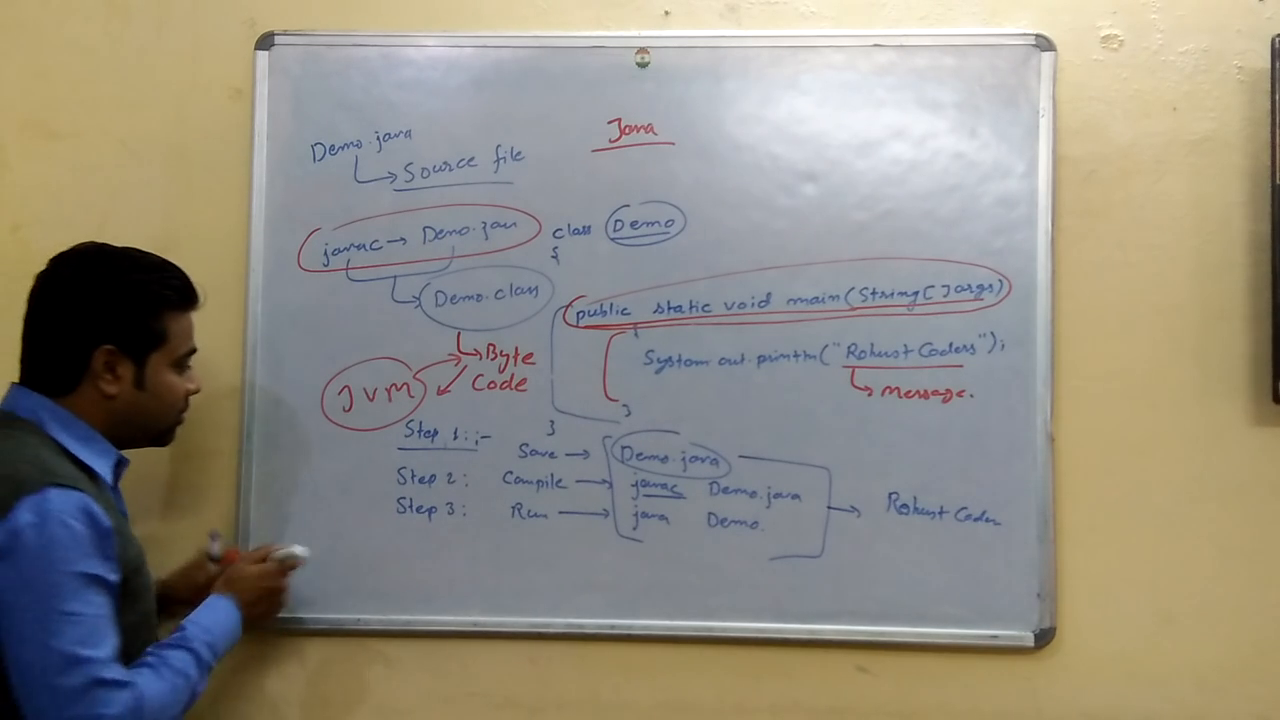 Java
Demo.java
Source file
javac → Demo.java
Demo.class
Byte
Code
JVM
class Demo
{
public static void main(String[]args)
{
System.out.println("Robust Coders");
message.
}
}
Step 1:;- Save → Demo.java
Step 2: Compile → javac Demo.java
Step 3: Run → java Demo.
Robust Coder